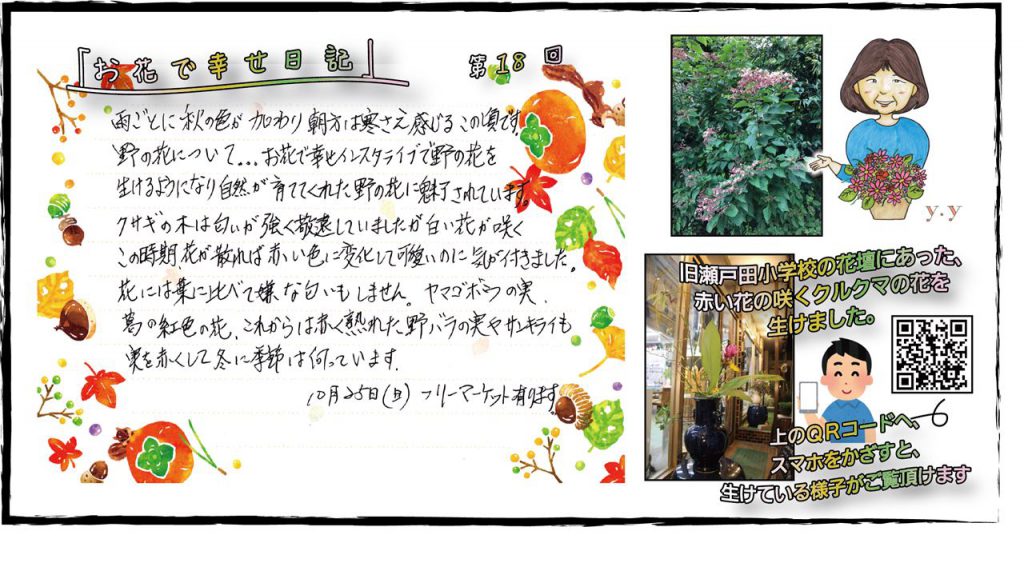 「お花で幸せ日記」
第18回
雨ごとに秋の色が加わり朝方は寒さえ感じるこの頃です
野の花について...お花で幸せインスタライブで野の花を
生けるようになり自然が育ててくれた野の花に魅了されています。
クサギの木は匂いが強く敬遠していましたが白い花が咲く
この時期花が散れば赤い色に変化して可愛いのに気が付きました。
花には葉に比べて嫌な匂いもしません。ヤマゴボウの実、
葛の紅色の花、これからは赤く熟れた野バラの実やサンキライも
実を赤くして冬に季節は向っています。
10月25日(日)フリーマーケット有ります。
y.y
旧瀬戸田小学校の花壇にあった、
赤い花の咲くクルクマの花を
生けました。
上のQRコードへ、
スマホをかざすと、
生けている様子がご覧頂けます